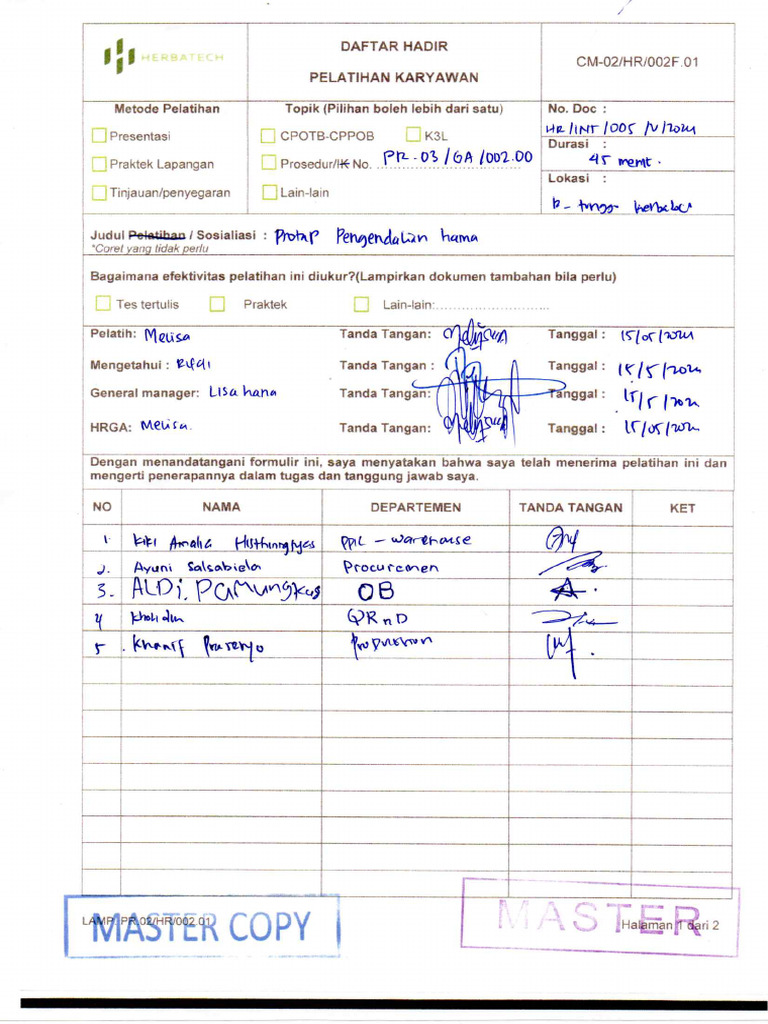 HERBATECH
DAFTAR HADIR
PELATIHAN KARYAWAN
CM-02/HR/002F.01
Metode Pelatihan
Topik (Pilihan boleh lebih dari satu)
No. Doc :
HR/INT/005/V/2024
Presentasi
CPOTB-CPPOB
K3L
Durasi :
45 menit.
Praktek Lapangan
Prosedur/IK No. PR-03/GA/002.00
Lokasi :
Tinjauan/penyegaran
Lain-lain
Judul Pelatihan / Sosialiasi : Protap Pengendalian hama
*Coret yang tidak perlu
Bagaimana efektivitas pelatihan ini diukur?(Lampirkan dokumen tambahan bila perlu)
Tes tertulis
Praktek
Lain-lain:
Pelatih: Melisa
Tanda Tangan:
Tanggal : 15/05/2024
Mengetahui : Rifdi
Tanda Tangan :
Tanggal : 15/5/2024
General manager: Lisa hana
Tanda Tangan:
Tanggal : 15/5/2024
HRGA: Melisa.
Tanda Tangan:
Tanggal : 15/05/2024
Dengan menandatangani formulir ini, saya menyatakan bahwa saya telah menerima pelatihan ini dan
mengerti penerapannya dalam tugas dan tanggung jawab saya.
NO NAMA DEPARTEMEN TANDA TANGAN KET
1. Kiki Amalia PPIC - Warehouse
2. Ayuni Salsabiela Procuremen
3. ALDi. PAMungkas OB
4 Kholidin QRnD
5. Khanif Prasetyo Production
LAMP. PR.02/HR/002.01
MASTER COPY
MASTER
Halaman 1 dari 2